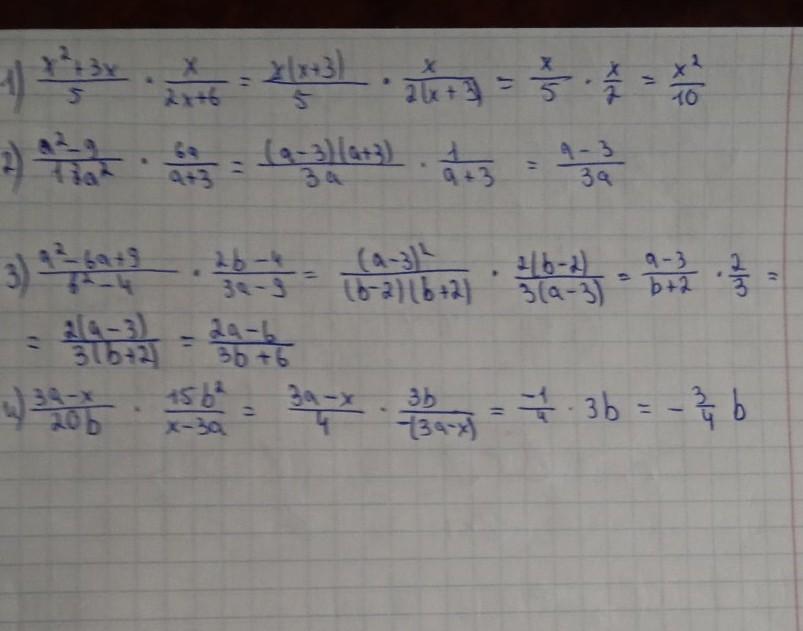 1) (x²+3x)/5 · x/(2x+6) = x(x+3)/5 · x/(2(x+3)) = x/5 · x/2 = x²/10
2) (a²-9)/(13a²) · 6a/(a+3) = (a-3)(a+3)/(3a) · 1/(a+3) = (a-3)/(3a)
3) (a²-6a+9)/(b²-4) · (2b-4)/(3a-9) = (a-3)²/((b-2)(b+2)) · 2(b-2)/(3(a-3)) = (a-3)/(b+2) · 2/3 =
= 2(a-3)/(3(b+2)) = (2a-6)/(3b+6)
4) (3a-x)/(20b) · 15b²/(x-3a) = (3a-x)/4 · 3b/(-(3a-x)) = -1/4 · 3b = -3/4 b